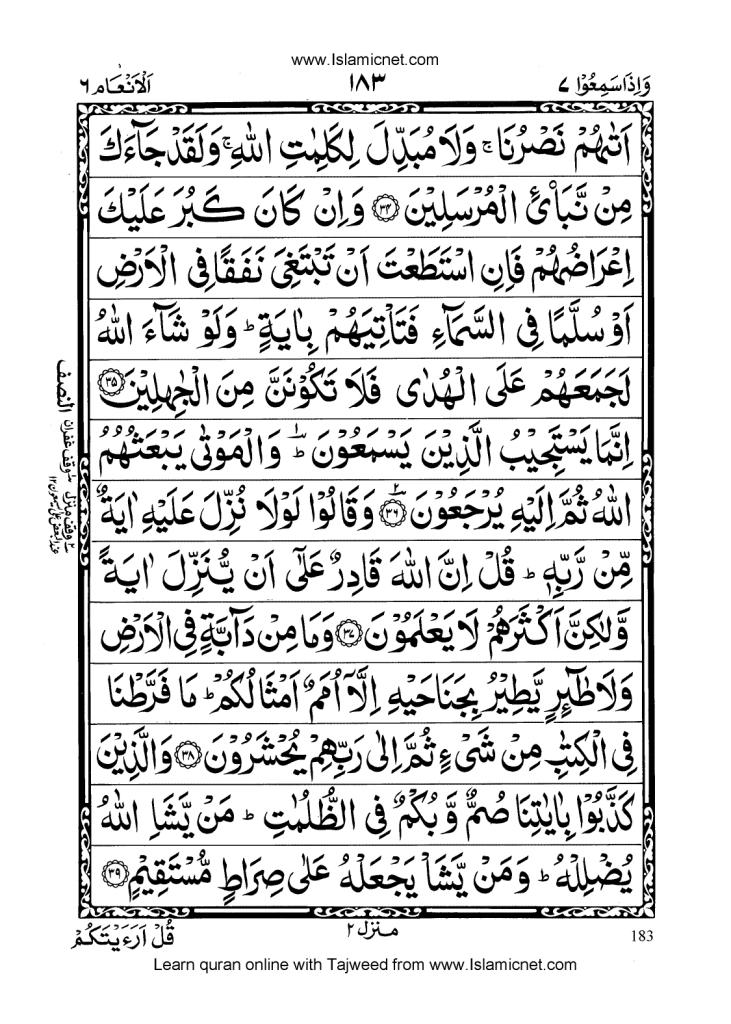 www.Islamicnet.com
وَاِذَا سَمِعُوْا ٧
١٨٣
اَلْاَنْعَام ٦
اَتٰىهُمْ نَصْرُنَا ۚ وَلَا مُبَدِّلَ لِكَلِمٰتِ اللّٰهِ ۚ وَلَقَدْ جَآءَكَ
مِنْ نَّبَاِى۟ الْمُرْسَلِيْنَ ﴿٣٤﴾ وَاِنْ كَانَ كَبُرَ عَلَيْكَ
اِعْرَاضُهُمْ فَاِنِ اسْتَطَعْتَ اَنْ تَبْتَغِىَ نَفَقًا فِى الْاَرْضِ
اَوْ سُلَّمًا فِى السَّمَآءِ فَتَاْتِيَهُمْ بِاٰيَةٍ ؕ وَلَوْ شَآءَ اللّٰهُ
لَجَمَعَهُمْ عَلَى الْهُدٰى فَلَا تَكُوْنَنَّ مِنَ الْجٰهِلِيْنَ ﴿٣٥﴾
اِنَّمَا يَسْتَجِيْبُ الَّذِيْنَ يَسْمَعُوْنَ ؕ وَالْمَوْتٰى يَبْعَثُهُمُ
اللّٰهُ ثُمَّ اِلَيْهِ يُرْجَعُوْنَ ﴿٣٦﴾ وَقَالُوْا لَوْلَا نُزِّلَ عَلَيْهِ اٰيَةٌ
مِّنْ رَّبِّهٖ ؕ قُلْ اِنَّ اللّٰهَ قَادِرٌ عَلٰٓى اَنْ يُّنَزِّلَ اٰيَةً
وَّلٰكِنَّ اَكْثَرَهُمْ لَا يَعْلَمُوْنَ ﴿٣٧﴾ وَمَا مِنْ دَآبَّةٍ فِى الْاَرْضِ
وَلَا طٰٓئِرٍ يَّطِيْرُ بِجَنَاحَيْهِ اِلَّاۤ اُمَمٌ اَمْثَالُكُمْ ؕ مَا فَرَّطْنَا
فِى الْكِتٰبِ مِنْ شَىْءٍ ثُمَّ اِلٰى رَبِّهِمْ يُحْشَرُوْنَ ﴿٣٨﴾ وَالَّذِيْنَ
كَذَّبُوْا بِاٰيٰتِنَا صُمٌّ وَّبُكْمٌ فِى الظُّلُمٰتِ ؕ مَنْ يَّشَاِ اللّٰهُ
يُضْلِلْهُ ؕ وَمَنْ يَّشَاْ يَجْعَلْهُ عَلٰى صِرَاطٍ مُّسْتَقِيْمٍ ﴿٣٩﴾
النصف
وقف غفران
وقف منزل
منزل ٢
قُلْ اَرَءَيْتَكُمْ
183
Learn quran online with Tajweed from www.Islamicnet.com